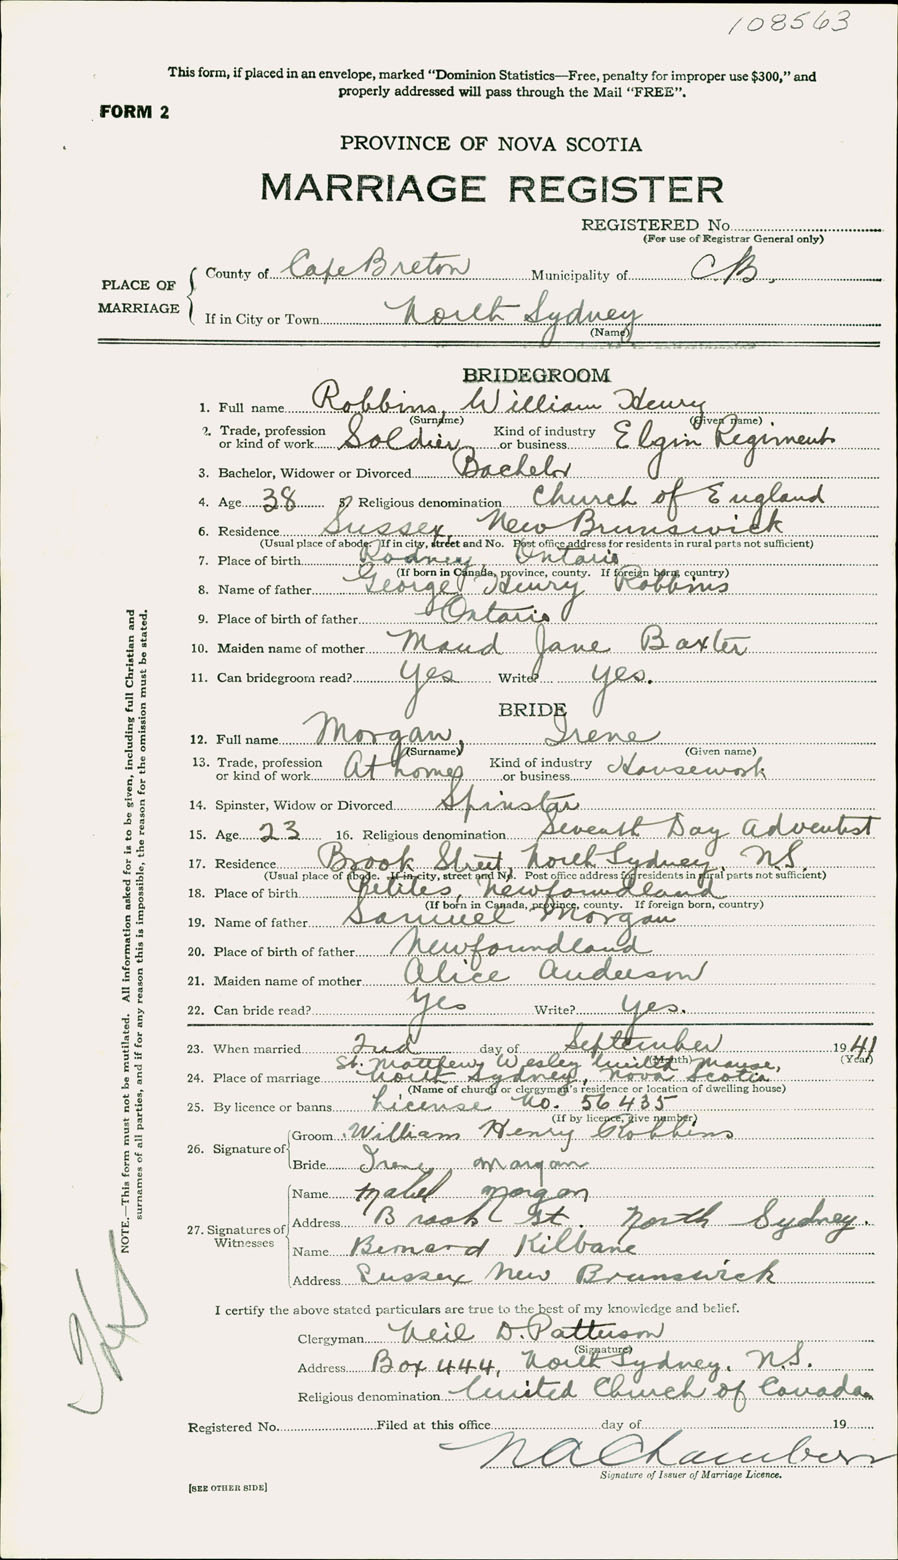 108563
This form, if placed in an envelope, marked "Dominion Statistics—Free, penalty for improper use $300," and
properly addressed will pass through the Mail "FREE".
FORM 2
PROVINCE OF NOVA SCOTIA
MARRIAGE REGISTER
REGISTERED No.
(For use of Registrar General only)
PLACE OF MARRIAGE
County of Cape Breton Municipality of C.B.
If in City or Town North Sydney
(Name)
BRIDEGROOM
1. Full name Robbins, William Henry
(Surname) (Given name)
2. Trade, profession or kind of work Soldier Kind of industry or business Elgin Regiment
3. Bachelor, Widower or Divorced Bachelor
4. Age 38 5. Religious denomination Church of England
6. Residence Sussex, New Brunswick
(Usual place of abode. If in city, street and No. Post office address for residents in rural parts not sufficient)
7. Place of birth Rodney, Ontario
(If born in Canada, province, county. If foreign born, country)
8. Name of father George Henry Robbins
9. Place of birth of father Ontario
10. Maiden name of mother Maud Jane Baxter
11. Can bridegroom read? Yes Write? Yes.
BRIDE
12. Full name Morgan, Irene
(Surname) (Given name)
13. Trade, profession or kind of work At home Kind of industry or business Housework
14. Spinster, Widow or Divorced Spinster
15. Age 23 16. Religious denomination Seventh Day Adventist
17. Residence Brook Street, North Sydney, N.S.
(Usual place of abode. If in city, street and No. Post office address for residents in rural parts not sufficient)
18. Place of birth Petites, Newfoundland
(If born in Canada, province, county. If foreign born, country)
19. Name of father Samuel Morgan
20. Place of birth of father Newfoundland
21. Maiden name of mother Alice Anderson
22. Can bride read? Yes Write? Yes.
23. When married 2nd day of September 1941
(Month) (Year)
St. Matthew Wesley United Manse,
24. Place of marriage North Sydney, Nova Scotia
(Name of church or clergyman's residence or location of dwelling house)
25. By licence or banns License No. 56435
(If by licence, give number)
26. Signature of Groom William Henry Robbins
Bride Irene Morgan
27. Signatures of Witnesses
Name Mabel Morgan
Address Brook St. North Sydney.
Name Bernard Kilbane
Address Sussex New Brunswick
I certify the above stated particulars are true to the best of my knowledge and belief.
Clergyman Neil D. Patterson
(Signature)
Address Box 444, North Sydney, N.S.
Religious denomination United Church of Canada
Registered No. Filed at this office day of 19
N A Chambers
Signature of Issuer of Marriage Licence.
[SEE OTHER SIDE]
NOTE.—This form must not be mutilated. All information asked for is to be given, including full Christian and
surnames of all parties, and if for any reason this is impossible, the reason for the omission must be stated.